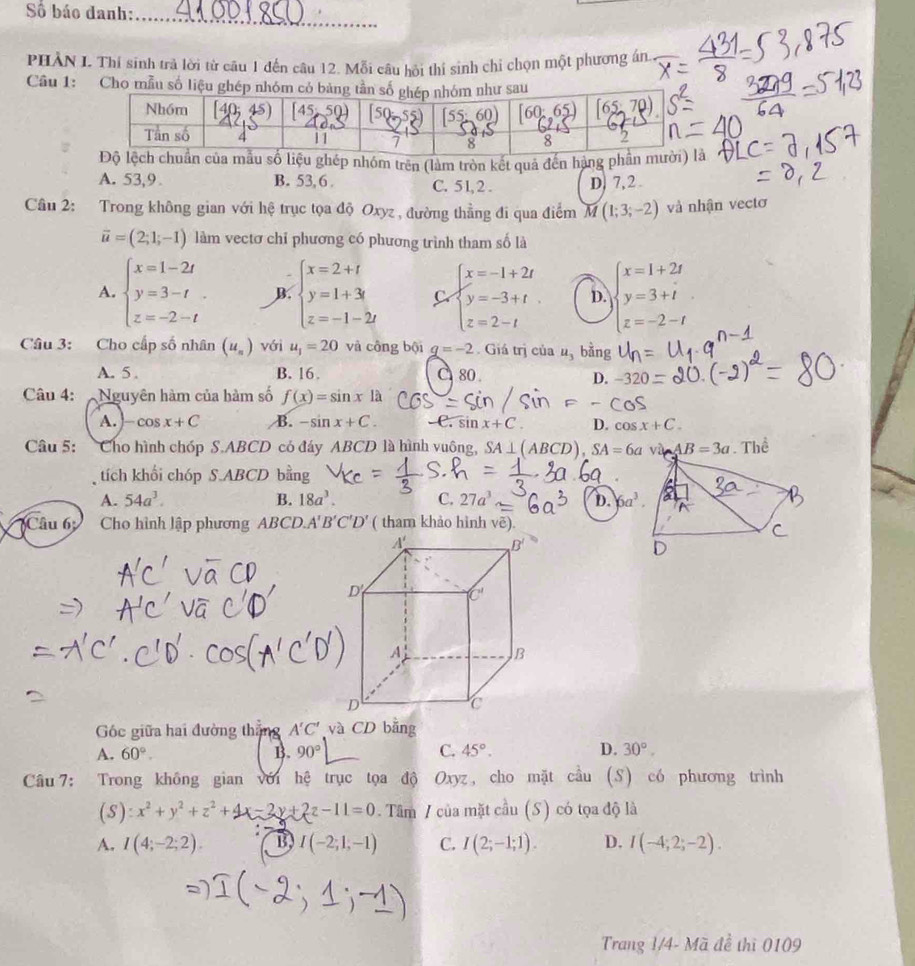 Số báo danh: 41001850
PHẦN I. Thí sinh trả lời từ câu 1 đến câu 12. Mỗi câu hỏi thí sinh chỉ chọn một phương án.
x̄ = 431/8 = 53,875
Câu 1: Cho mẫu số liệu ghép nhóm có bảng tần số ghép nhóm như sau
Nhóm [40; 45) [45; 50) [50; 55) [55; 60) [60; 65) [65; 70)
Tần số 4 11 7 8 8 2
S² = 3279/64 = 51,23
n = 40
ĐLC = 7,157
= 7,2
Độ lệch chuẩn của mẫu số liệu ghép nhóm trên (làm tròn kết quả đến hàng phần mười) là
A. 53,9. B. 53,6. C. 51,2. D. 7,2.
Câu 2: Trong không gian với hệ trục tọa độ Oxyz, đường thẳng đi qua điểm M(1;3;-2) và nhận vectơ
u = (2;1;-1) làm vectơ chỉ phương có phương trình tham số là
A. { x = 1 - 2t y = 3 - t z = -2 - t . B. { x = 2 + t y = 1 + 3t z = -1 - 2t C. { x = -1 + 2t y = -3 + t z = 2 - t . D. { x = 1 + 2t y = 3 + t z = -2 - t .
Câu 3: Cho cấp số nhân (uₙ) với u₁ = 20 và công bội q = -2. Giá trị của u₃ bằng Un = U1.q^(n-1)
A. 5. B. 16. C. 80. D. -320 = 20.(-2)² = 80.
Câu 4: Nguyên hàm của hàm số f(x) = sin x là cos = sin / sin = - cos
A. -cos x + C B. -sin x + C. C. sin x + C. D. cos x + C.
Câu 5: Cho hình chóp S.ABCD có đáy ABCD là hình vuông, SA ⊥ (ABCD), SA = 6a và AB = 3a. Thể
tích khối chóp S.ABCD bằng Vkc = 1/3 . S.h = 1/3 . 3a.6a
A. 54a³. B. 18a³. C. 27a³ = 6a³ D. 6a³.
3a
A B
D C
Câu 6: Cho hình lập phương ABCD.A'B'C'D' ( tham khảo hình vẽ).
A' B'
D' C'
A B
D C
A'C' và CD
=> A'C' và C'D'
= A'C'.C'D'. cos(A'C'D')
=
Góc giữa hai đường thẳng A'C' và CD bằng
A. 60°. B. 90° C. 45°. D. 30°.
Câu 7: Trong không gian với hệ trục tọa độ Oxyz, cho mặt cầu (S) có phương trình
(S): x² + y² + z² + 4x - 2y + 2z - 11 = 0. Tâm I của mặt cầu (S) có tọa độ là
A. I(4;-2;2). B. I(-2;1;-1) C. I(2;-1;1). D. I(-4;2;-2).
=> I(-2; 1; -1)
Trang 1/4- Mã đề thi 0109